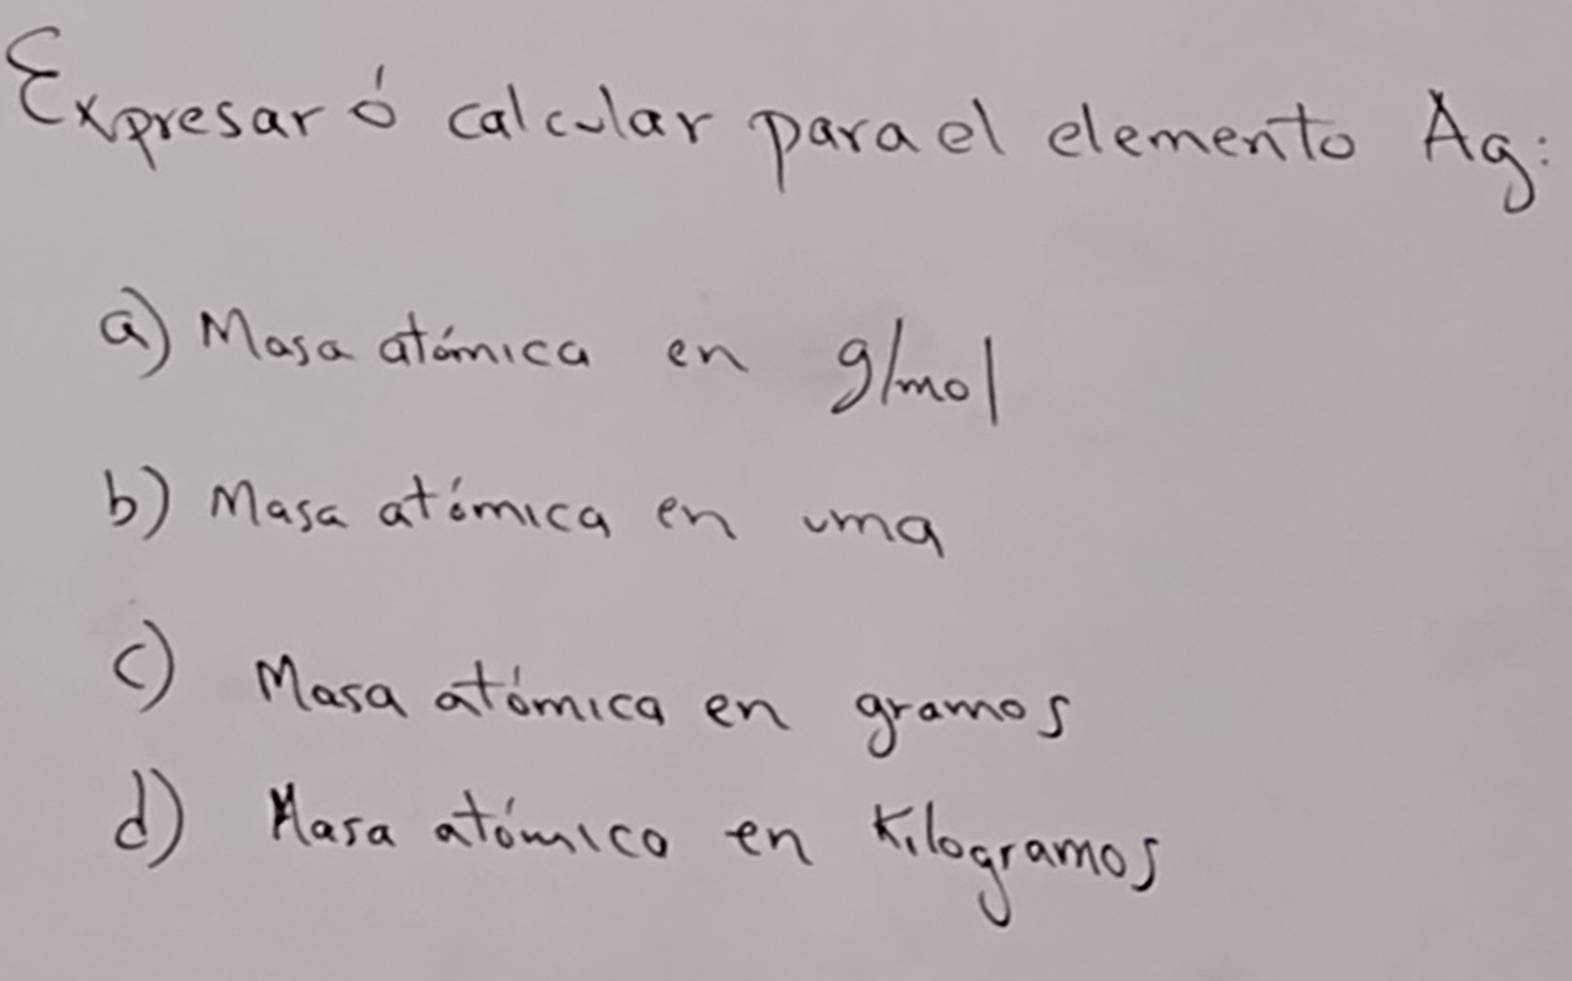 Expresar ó calcular para el elemento Ag:
a) Masa atómica en g/mol
b) Masa atómica en uma
c) Masa atómica en gramos
d) Masa atómica en Kilogramos